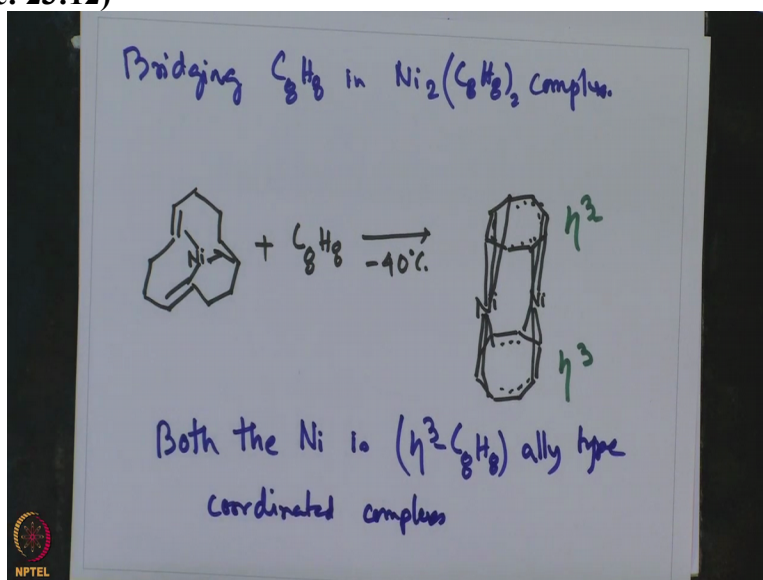 c. 25:12)
Bridging C₈H₈ in Ni₂(C₈H₈)₂ complex.
Ni + C₈H₈ -40°C.
η³
Ni Ni
η³
Both the Ni is (η³-C₈H₈) ally type
coordinated complex
NPTEL